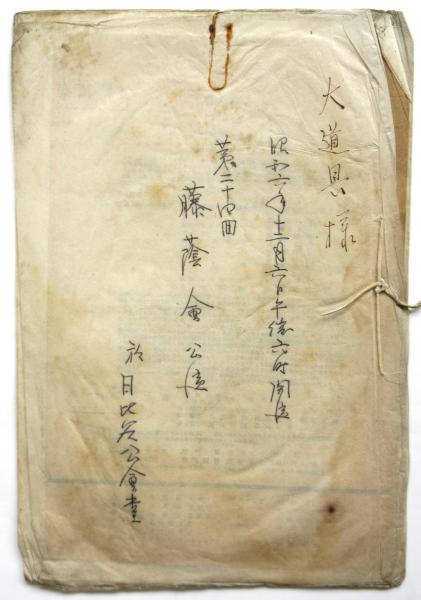 大道具様
昭和六年十二月六日午後六時開演
第二十四回
藤蔭会公演
於日比谷公会堂